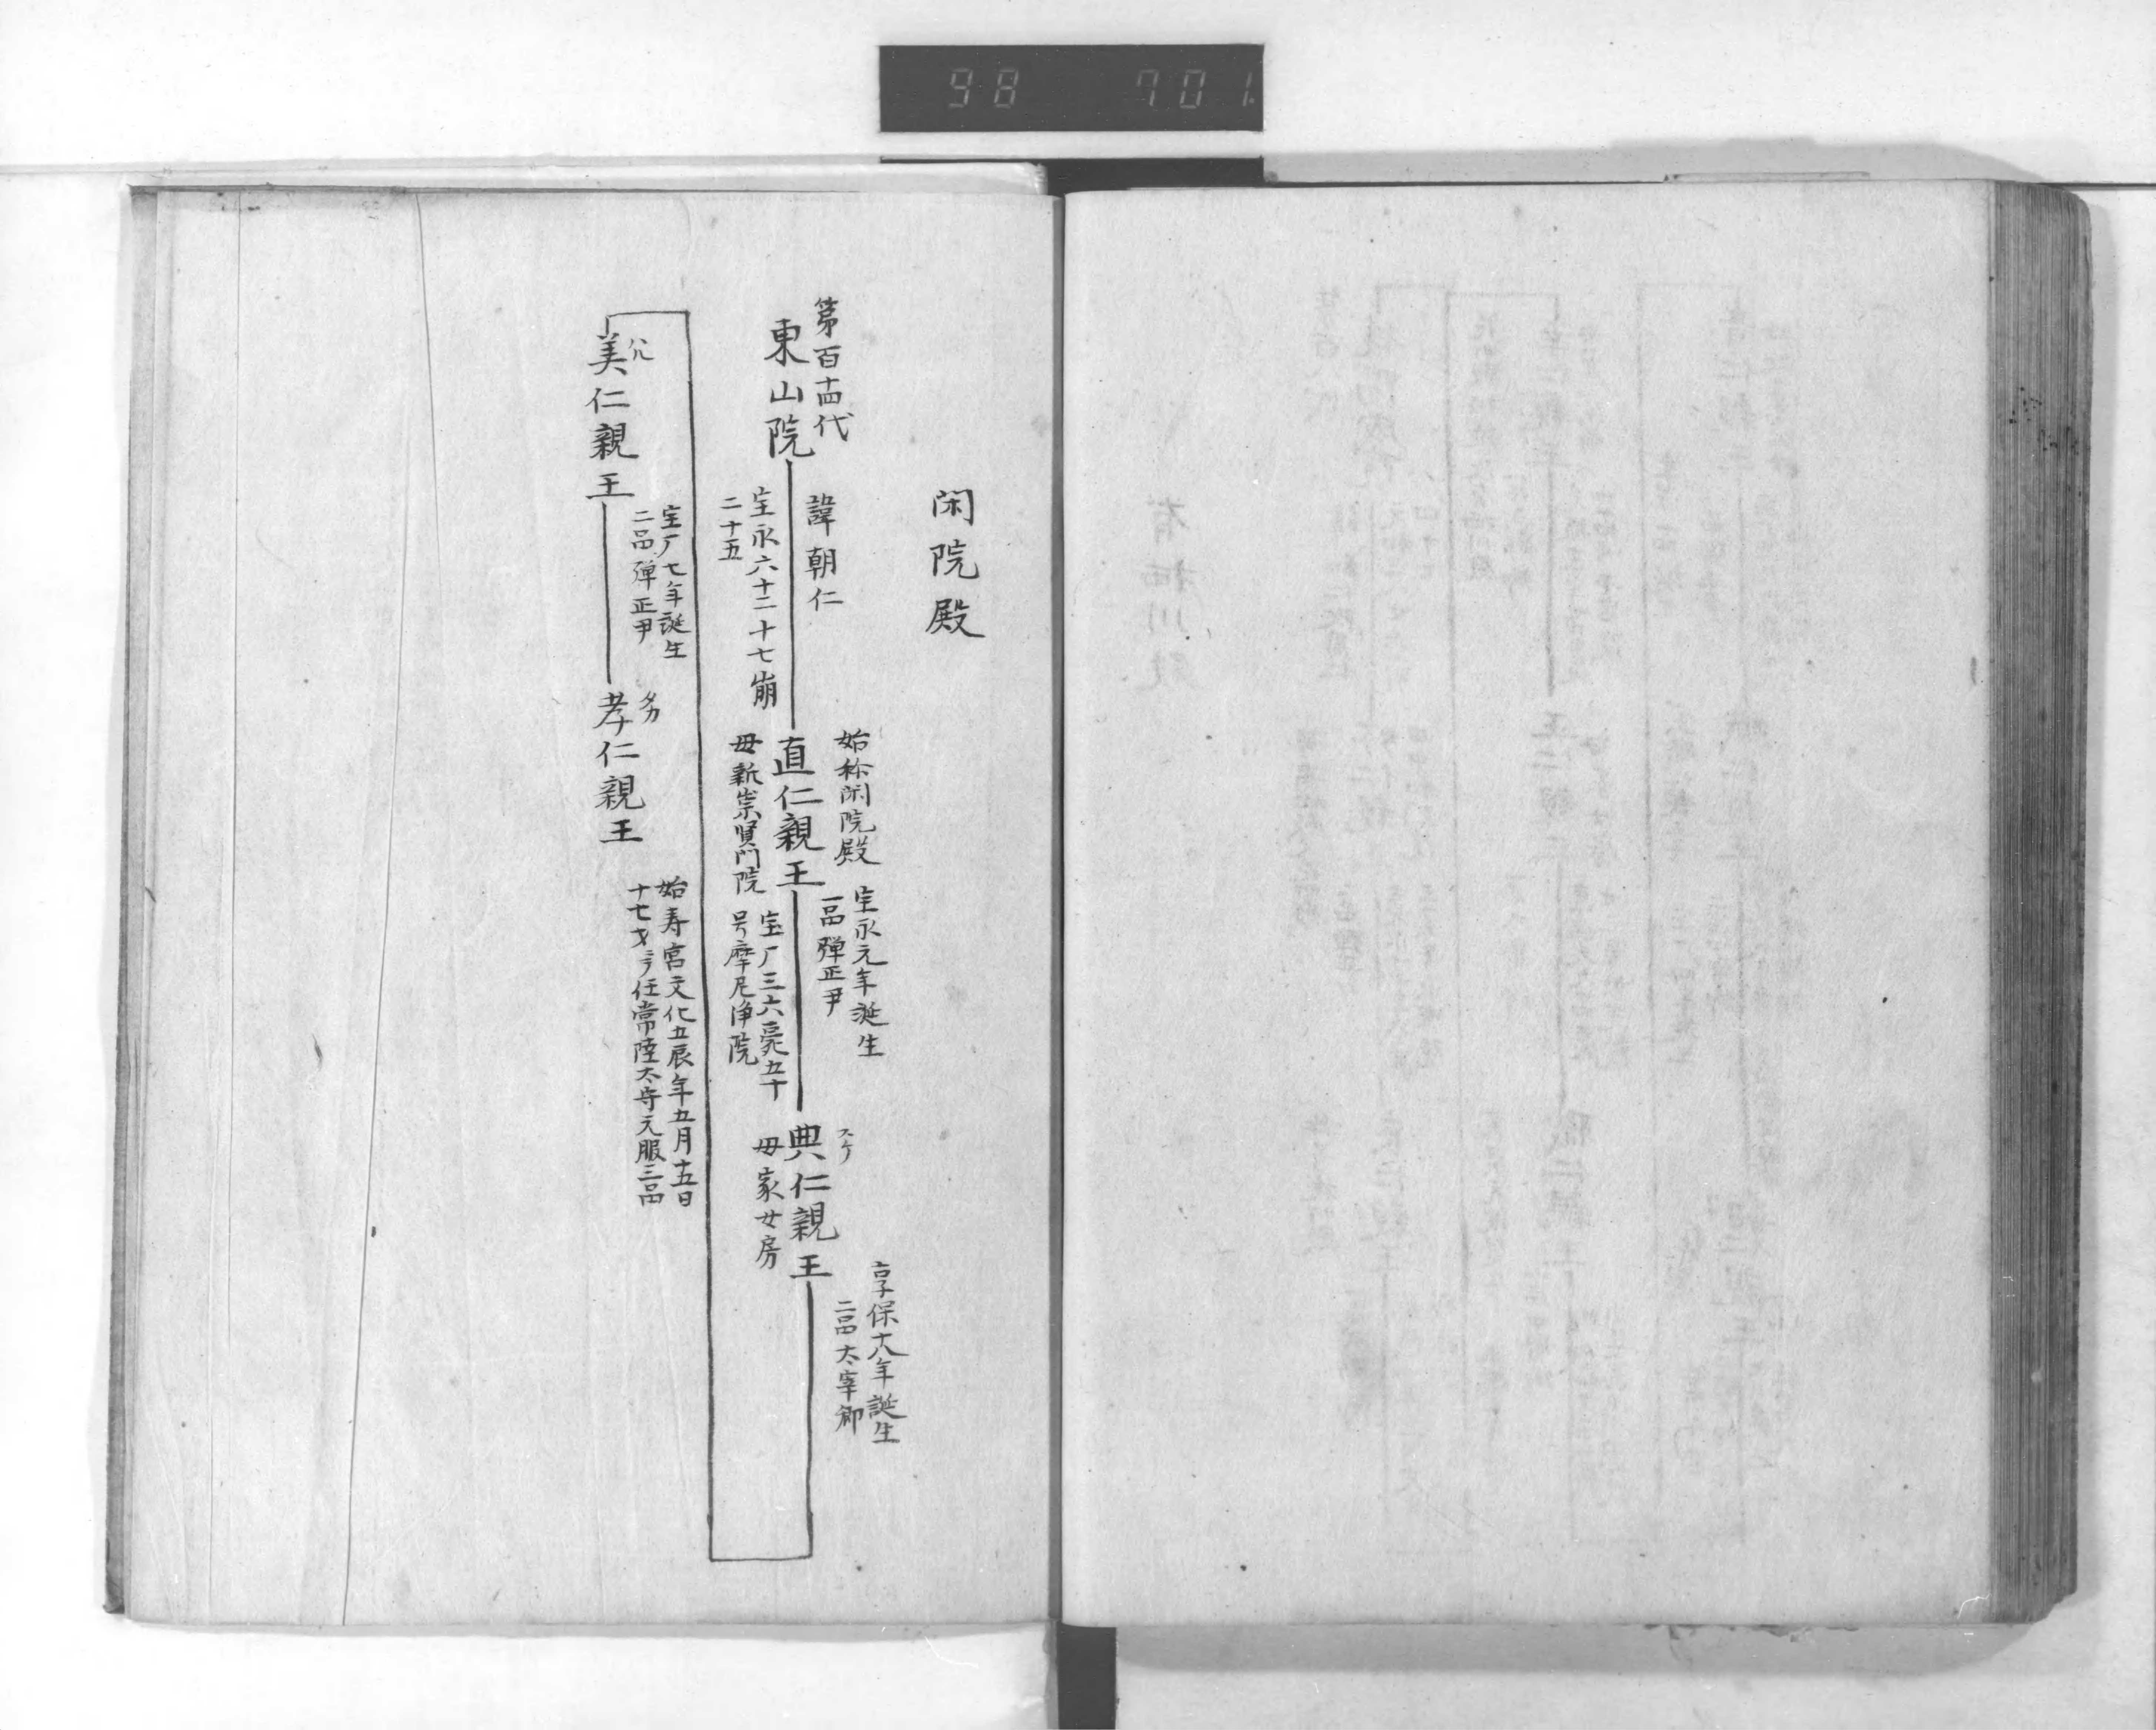 98 701
閑院殿
第百十四代
東山院
諱朝仁
宝永六十二十七崩
二十五
始称閑院殿
直仁親王
母新崇賢門院
宝永元年誕生
一品弾正尹
宝厂三六薨五十
号摩尼浄院
スケ
典仁親王
母家女房
享保十八年誕生
二品太宰帥
美仁親王
宝厂七年誕生
二品弾正尹
孝仁親王
始寿宮文化五辰年五月十五日
十七才ニテ任常陸太守元服三品